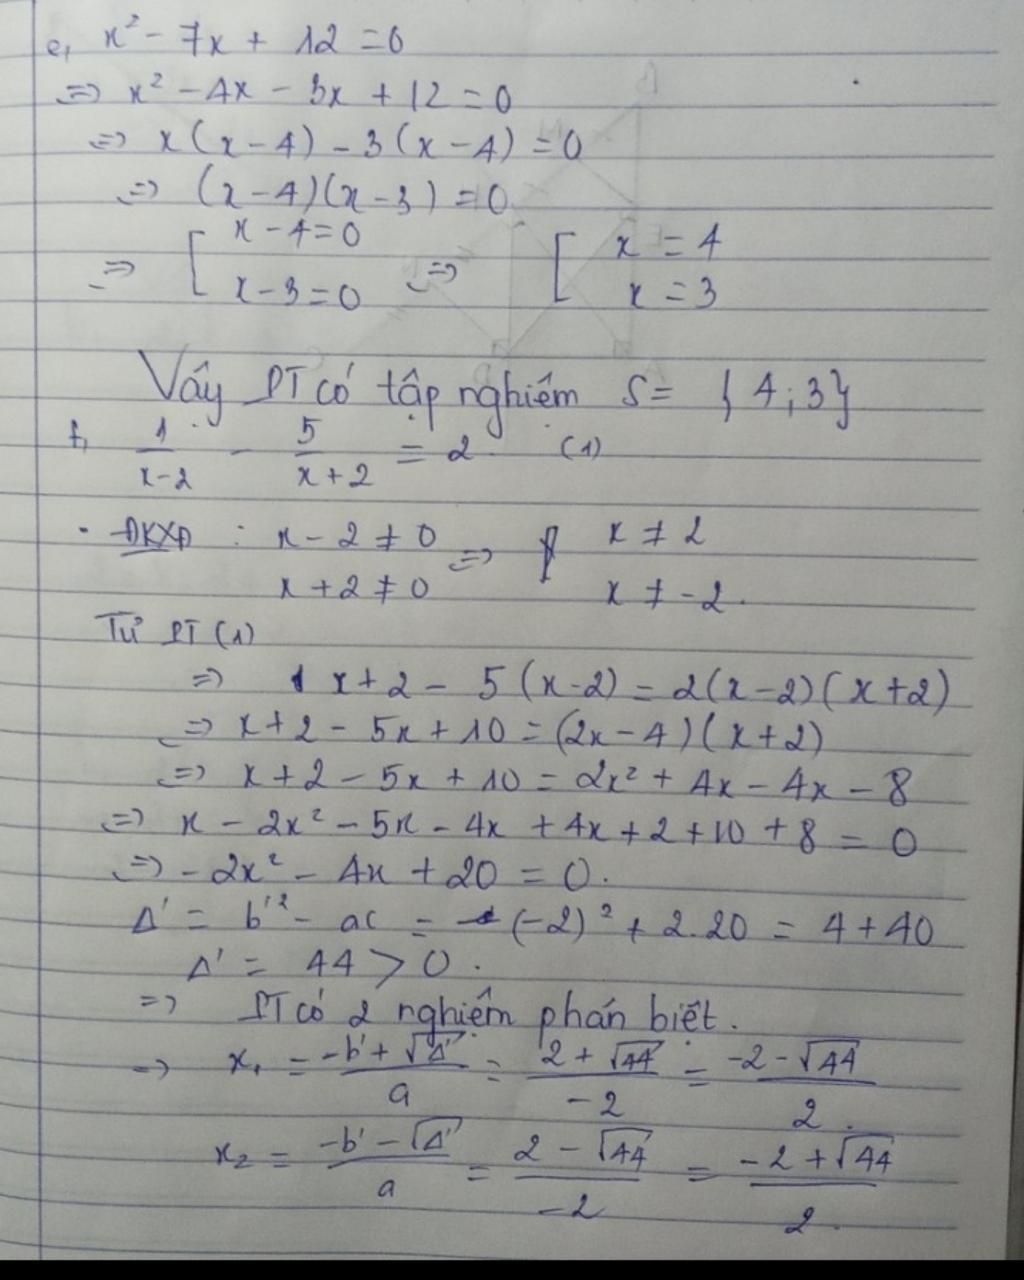 e, x² - 7x + 12 = 0
=> x² - 4x - 3x + 12 = 0
=> x(x-4) - 3(x-4) = 0
=> (x-4)(x-3) = 0
=> [ x-4=0 => [ x = 4
x-3=0 x = 3
Vậy PT có tập nghiệm S = {4;3}
f, 1/(x-2) - 5/(x+2) = 2 (1)
· ĐKXĐ : x-2 ≠ 0 => { x ≠ 2
x+2 ≠ 0 x ≠ -2.
Từ PT (1)
=> 1x+2 - 5(x-2) = 2(x-2)(x+2)
=> x+2 - 5x+10 = (2x-4)(x+2)
=> x+2 - 5x + 10 = 2x² + 4x - 4x - 8
=> x - 2x² - 5x - 4x + 4x + 2 + 10 + 8 = 0
=> -2x² - 4x + 20 = 0.
Δ' = b'² - ac = (-2)² + 2.20 = 4 + 40
Δ' = 44 > 0.
=> PT có 2 nghiệm phân biệt.
=> x₁ = (-b' + √Δ')/a = (2 + √44)/-2 = (-2 - √44)/2.
x₂ = (-b' - √Δ')/a = (2 - √44)/-2 = (-2 + √44)/2.